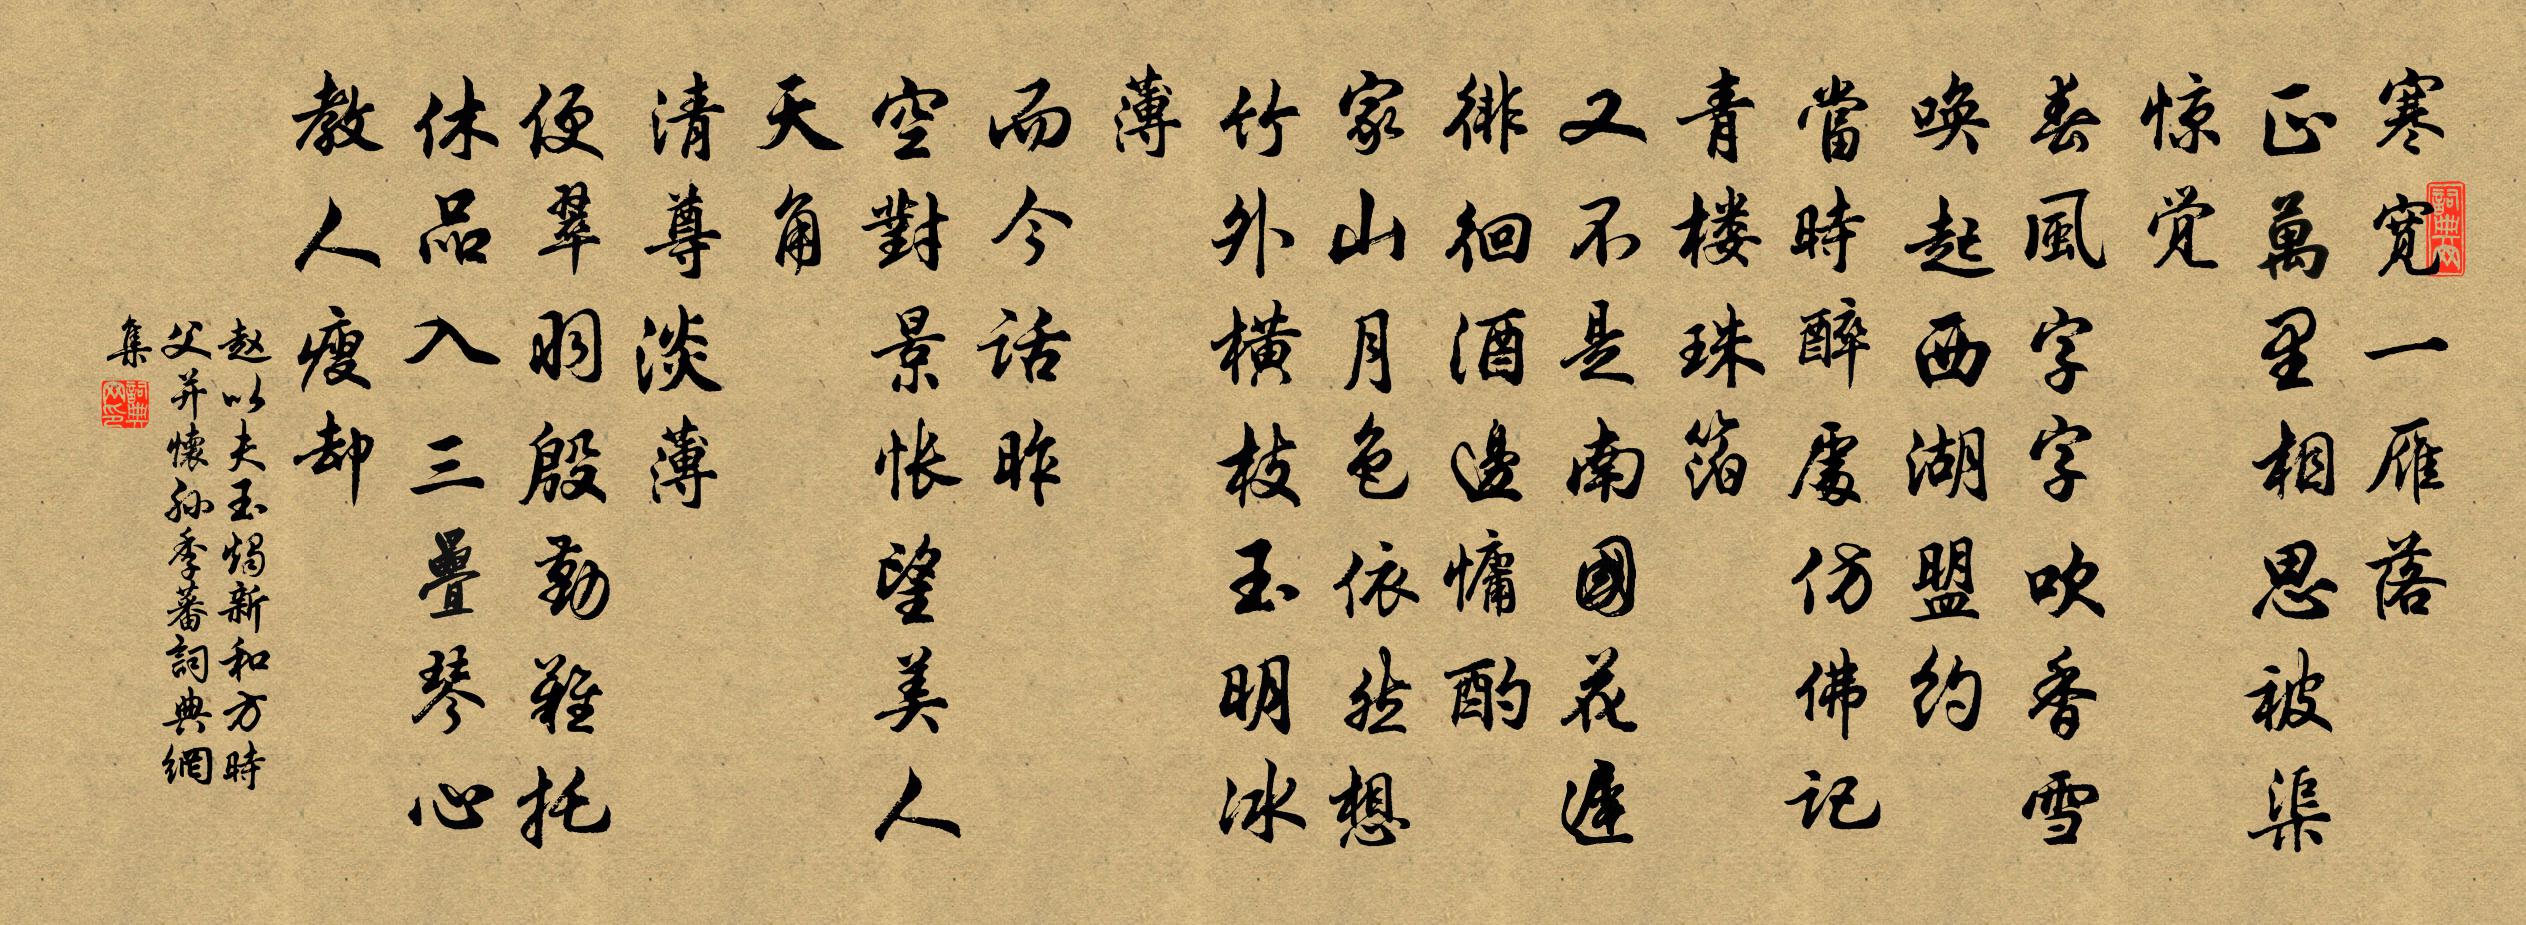 寒寬一雁落
正萬里相思被渠
惊觉
春風字字吹香雪
唤起西湖盟约
當時醉處仿佛记
青楼珠箔
又不是南國花遲
徘徊酒邊慵酌
家山月色依然想
竹外横枝玉明冰
薄
而今话昨
空對景怅望美人
天角
清尊淡薄
便翠羽殷勤難托
休品入三疊琴心
教人瘦却
赵以夫玉燭新和方時
父并懷孙季蕃詞典網
集
詞典网
詞典网印